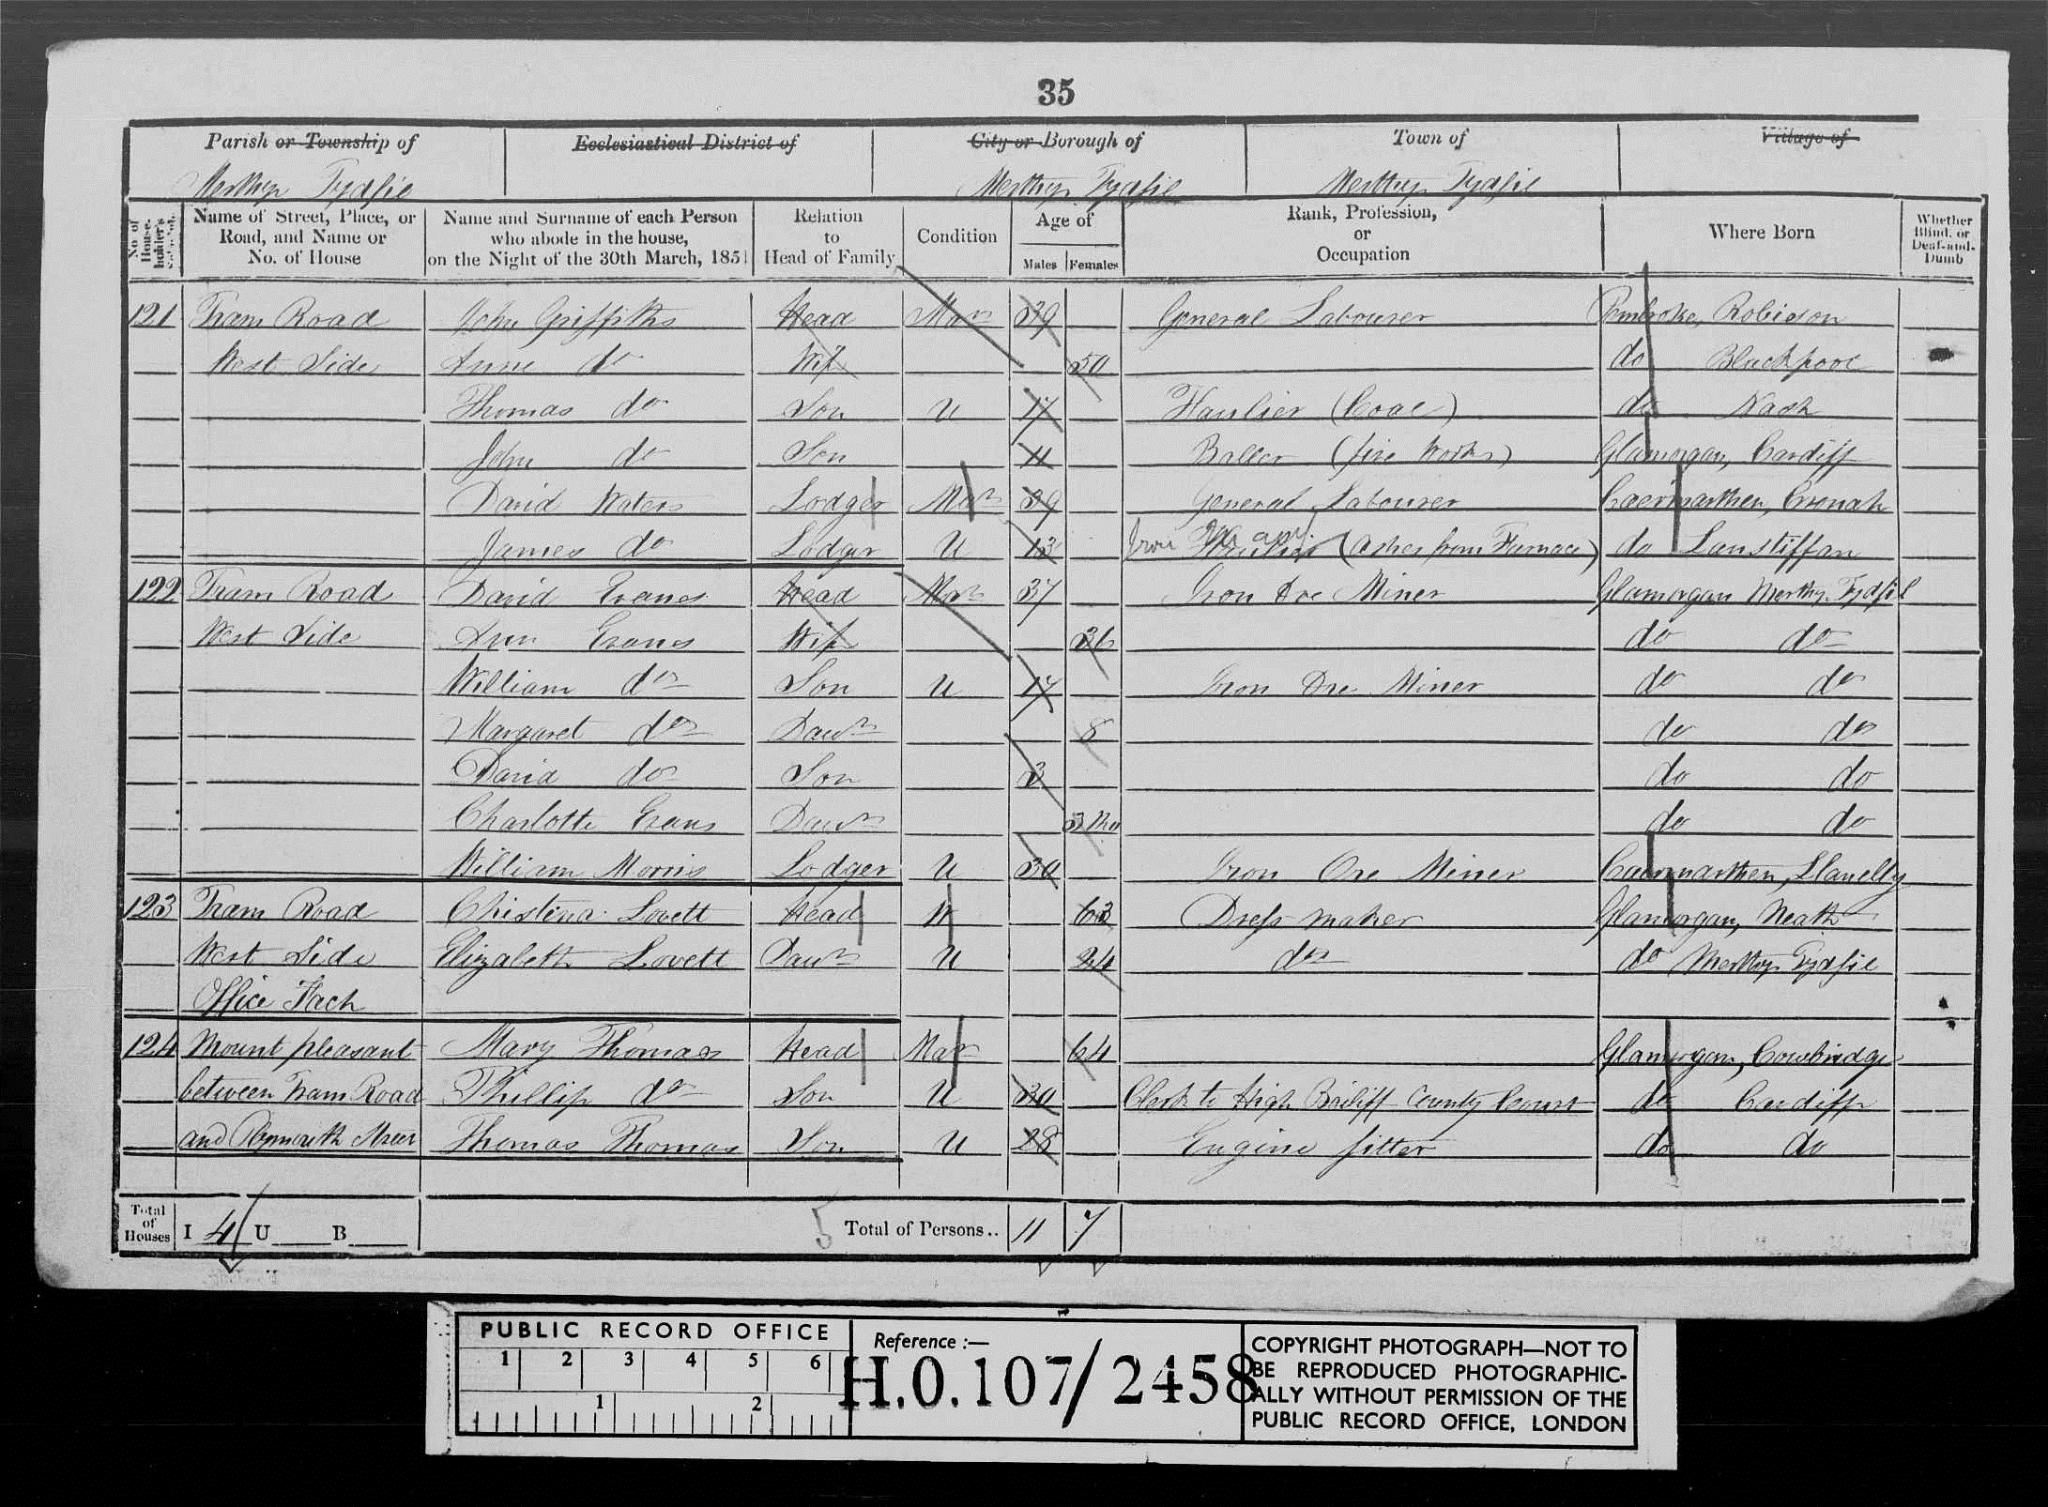 35
Parish or Township of Ecclesiastical District of City or Borough of Town of Village of
Merthyr Tydfil Merthyr Tydfil Merthyr Tydfil
No. of House-holder's Name of Street, Place, or Road, and Name or No. of House Name and Surname of each Person who abode in the house, on the Night of the 30th March, 1851 Relation to Head of Family Condition Age of Males Females Rank, Profession, or Occupation Where Born Whether Blind, or Deaf-and-Dumb
121 Tram Road John Griffiths Head Marr 39 General Labourer Pembroke, Robeson
West Side Anne do Wife 50 do Blackpool
Thomas do Son U 17 Haulier (Coal) do Nash
John do Son 11 Baller (fire Works) Glamorgan, Cardiff
David Waters Lodger Marr 39 General Labourer Caermarthen,
James do Lodger U 13 Iron (Ashes from Furnace) do Lanstiffan
122 Tram Road David Evans Head Marr 37 Iron Ore Miner Glamorgan Merthyr Tydfil
West Side Ann Evans Wife 36 do do
William do Son U 17 Iron Ore Miner do do
Margaret do Daur 8 do do
David do Son 3 do do
Charlotte Evans Daur do do
William Morris Lodger U 30 Iron Ore Miner Caermarthen, Llanelly
123 Tram Road Christina Lovett Head W 63 Dress maker Glamorgan, Neath
West Side Elizabeth Lovett Daur U 24 do do Merthyr Tydfil
Office Fach
124 Mount pleasant Mary Thomas Head Marr 64 Glamorgan, Cowbridge
between Tram Road Phillip do Son U 30 Clerk to High Bailiff County Court do Cardiff
and Plymouth Street Thomas Thomas Son U 28 Engine fitter do do
Total of Houses I 4 U B 5 Total of Persons.. 11 7
PUBLIC RECORD OFFICE
1 2 3 4 5 6
1 2
Reference :—
H.O.107/2458
COPYRIGHT PHOTOGRAPH—NOT TO
BE REPRODUCED PHOTOGRAPHIC-
ALLY WITHOUT PERMISSION OF THE
PUBLIC RECORD OFFICE, LONDON